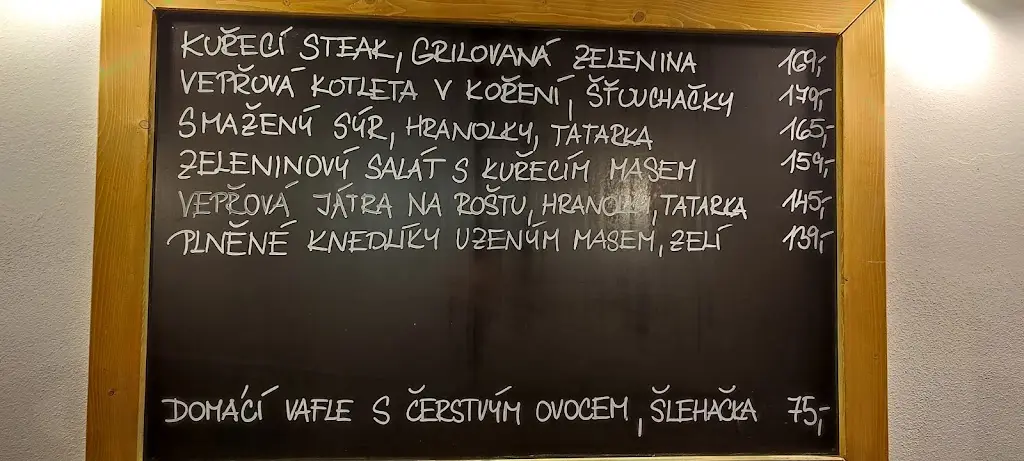 KUŘECÍ STEAK, GRILOVANÁ ZELENINA 169,-
VEPŘOVÁ KOTLETA V KOŘENÍ, ŠŤOUCHAČKY 179,-
SMAŽENÝ SÝR, HRANOLKY, TATARKA 165,-
ZELENINOVÝ SALÁT S KUŘECÍM MASEM 159,-
VEPŘOVÁ JÁTRA NA ROŠTU, HRANOLKY, TATARKA 145,-
PLNĚNÉ KNEDLÍKY UZENÝM MASEM, ZELÍ 139,-
DOMÁCÍ VAFLE S ČERSTVÝM OVOCEM, ŠLEHAČKA 75,-